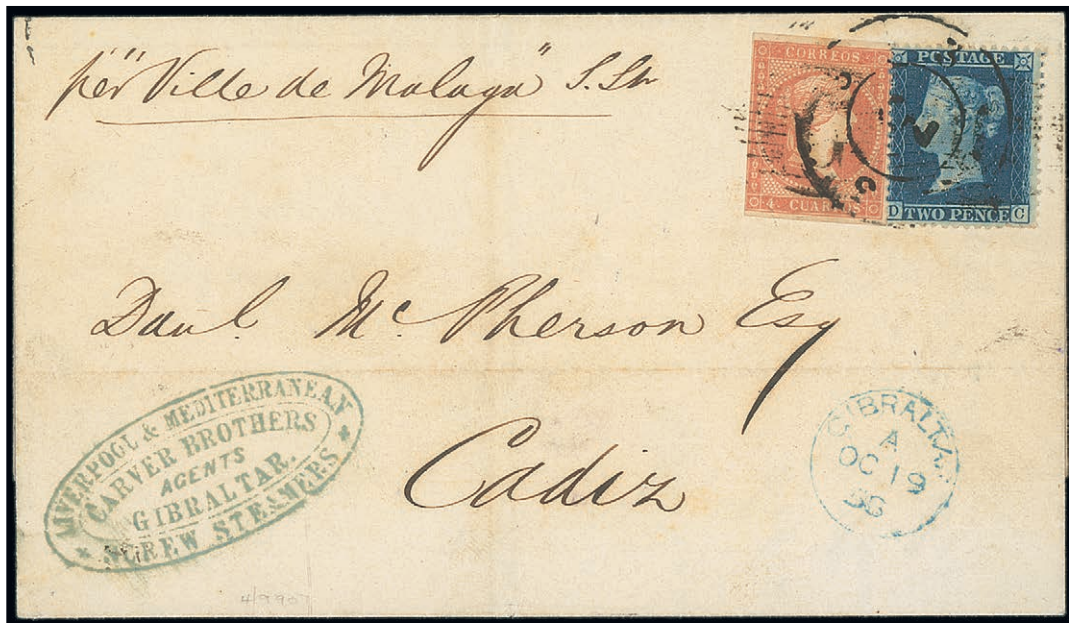 per "Ville de Malaga" S. Str
CORREOS
4. CUARTOS
POSTAGE
D TWO PENCE C
Danl. Mc Pherson Esq
Cadiz
LIVERPOOL & MEDITERRANEAN
CARVER BROTHERS
AGENTS
GIBRALTAR.
* SCREW STEAMERS *
GIBRALTAR
A
OC 19
56
4/990